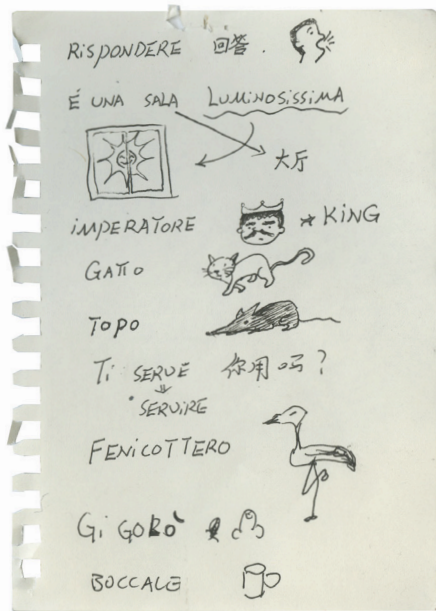 RISPONDERE 回答.
É UNA SALA LUMINOSISSIMA
大厅
IMPERATORE ★ KING
GATTO
TOPO
Ti SERVE 你用吗?
SERVIRE
FENICOTTERO
Gi GORÒ
BOCCALE